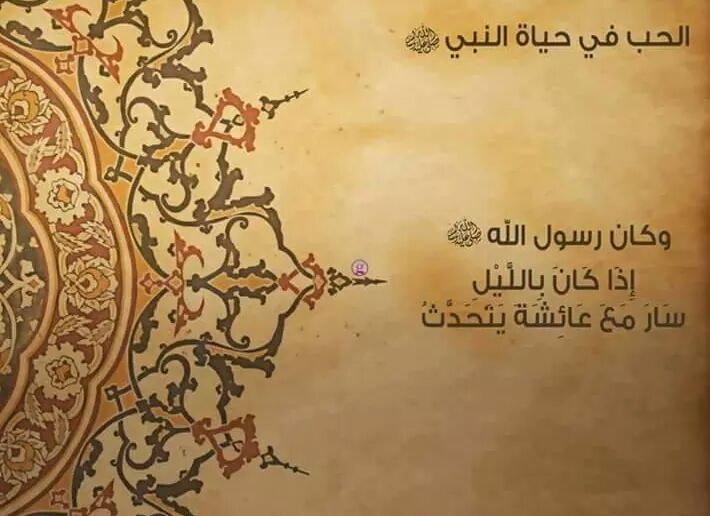 الحب في حياة النبي ﷺ
وكان رسول الله ﷺ
إِذَا كَانَ بِاللَّيْلِ
سَارَ مَعَ عَائِشَةَ يَتَحَدَّثُ
g